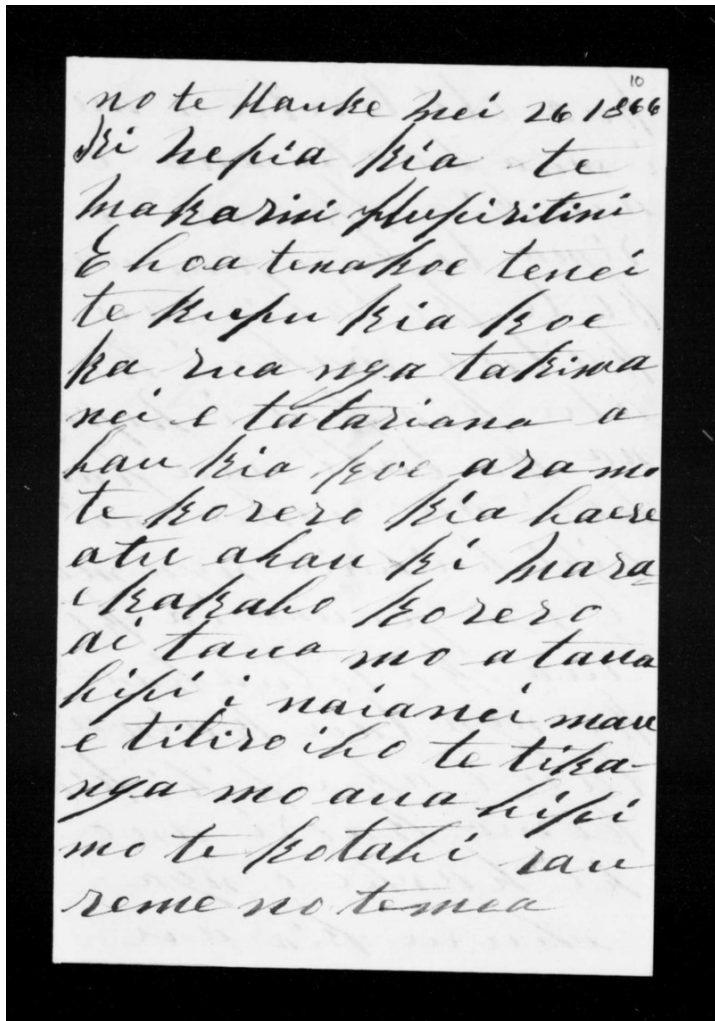 10
no te Hauke Mei 26 1866
Ki Nepia kia te
Makarini Hupiritini
E hoa tenakoe tenei
te kupu kia koe
ka rua nga takiwa
nei e tatariana a
hau kia koe ara mo
te korero kia haere
atu ahau ki Mara-
ekakaho korero
ai taua mo a taua
hipi i naianei mau
e titiro iho te tika-
nga mo aua hipi
mo te kotahi rau
reme no temea